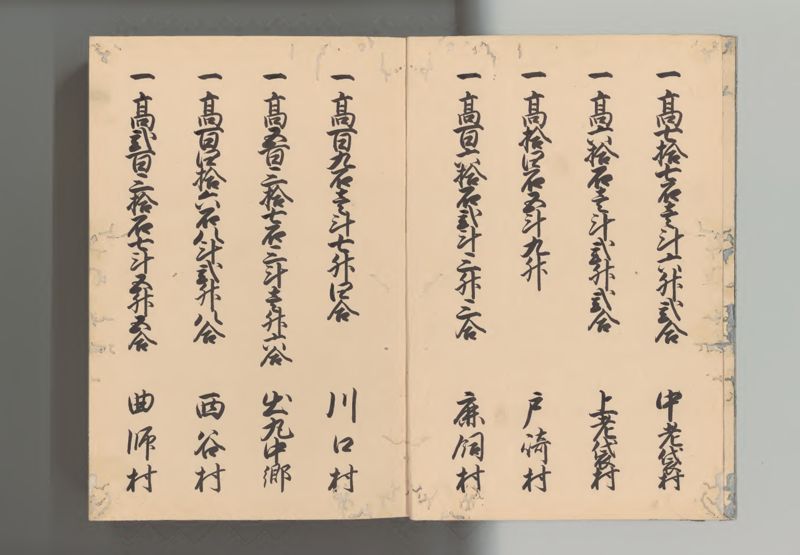 一 高七拾七石壱斗六升弐合 中老袋村
一 高六拾石壱斗弐升弐合 上老袋村
一 高拾四石五斗九升 戸崎村
一 高百六拾石弐斗三升三合 麻飼村
一 高百九石壱斗七升四合 川口村
一 高五百三拾七石三斗壱升六合 出丸中郷
一 高百四拾六石八斗弐升八合 西谷村
一 高弐百三拾石七斗五升五合 曲師村